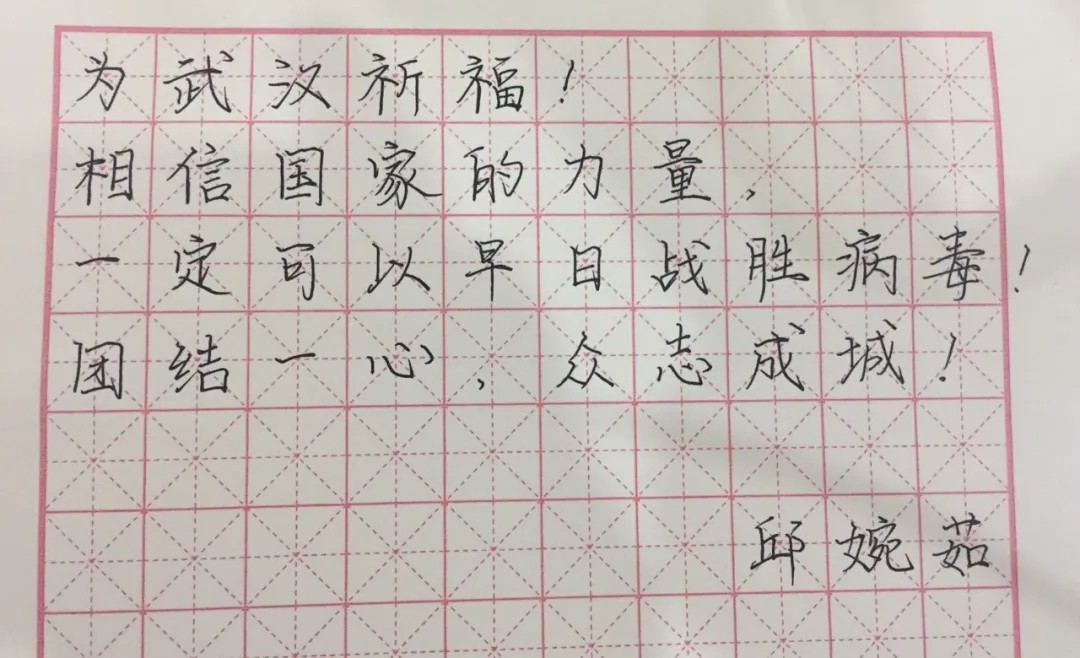 为武汉祈福！
相信国家的力量，
一定可以早日战胜病毒！
团结一心，众志成城！
邱婉茹